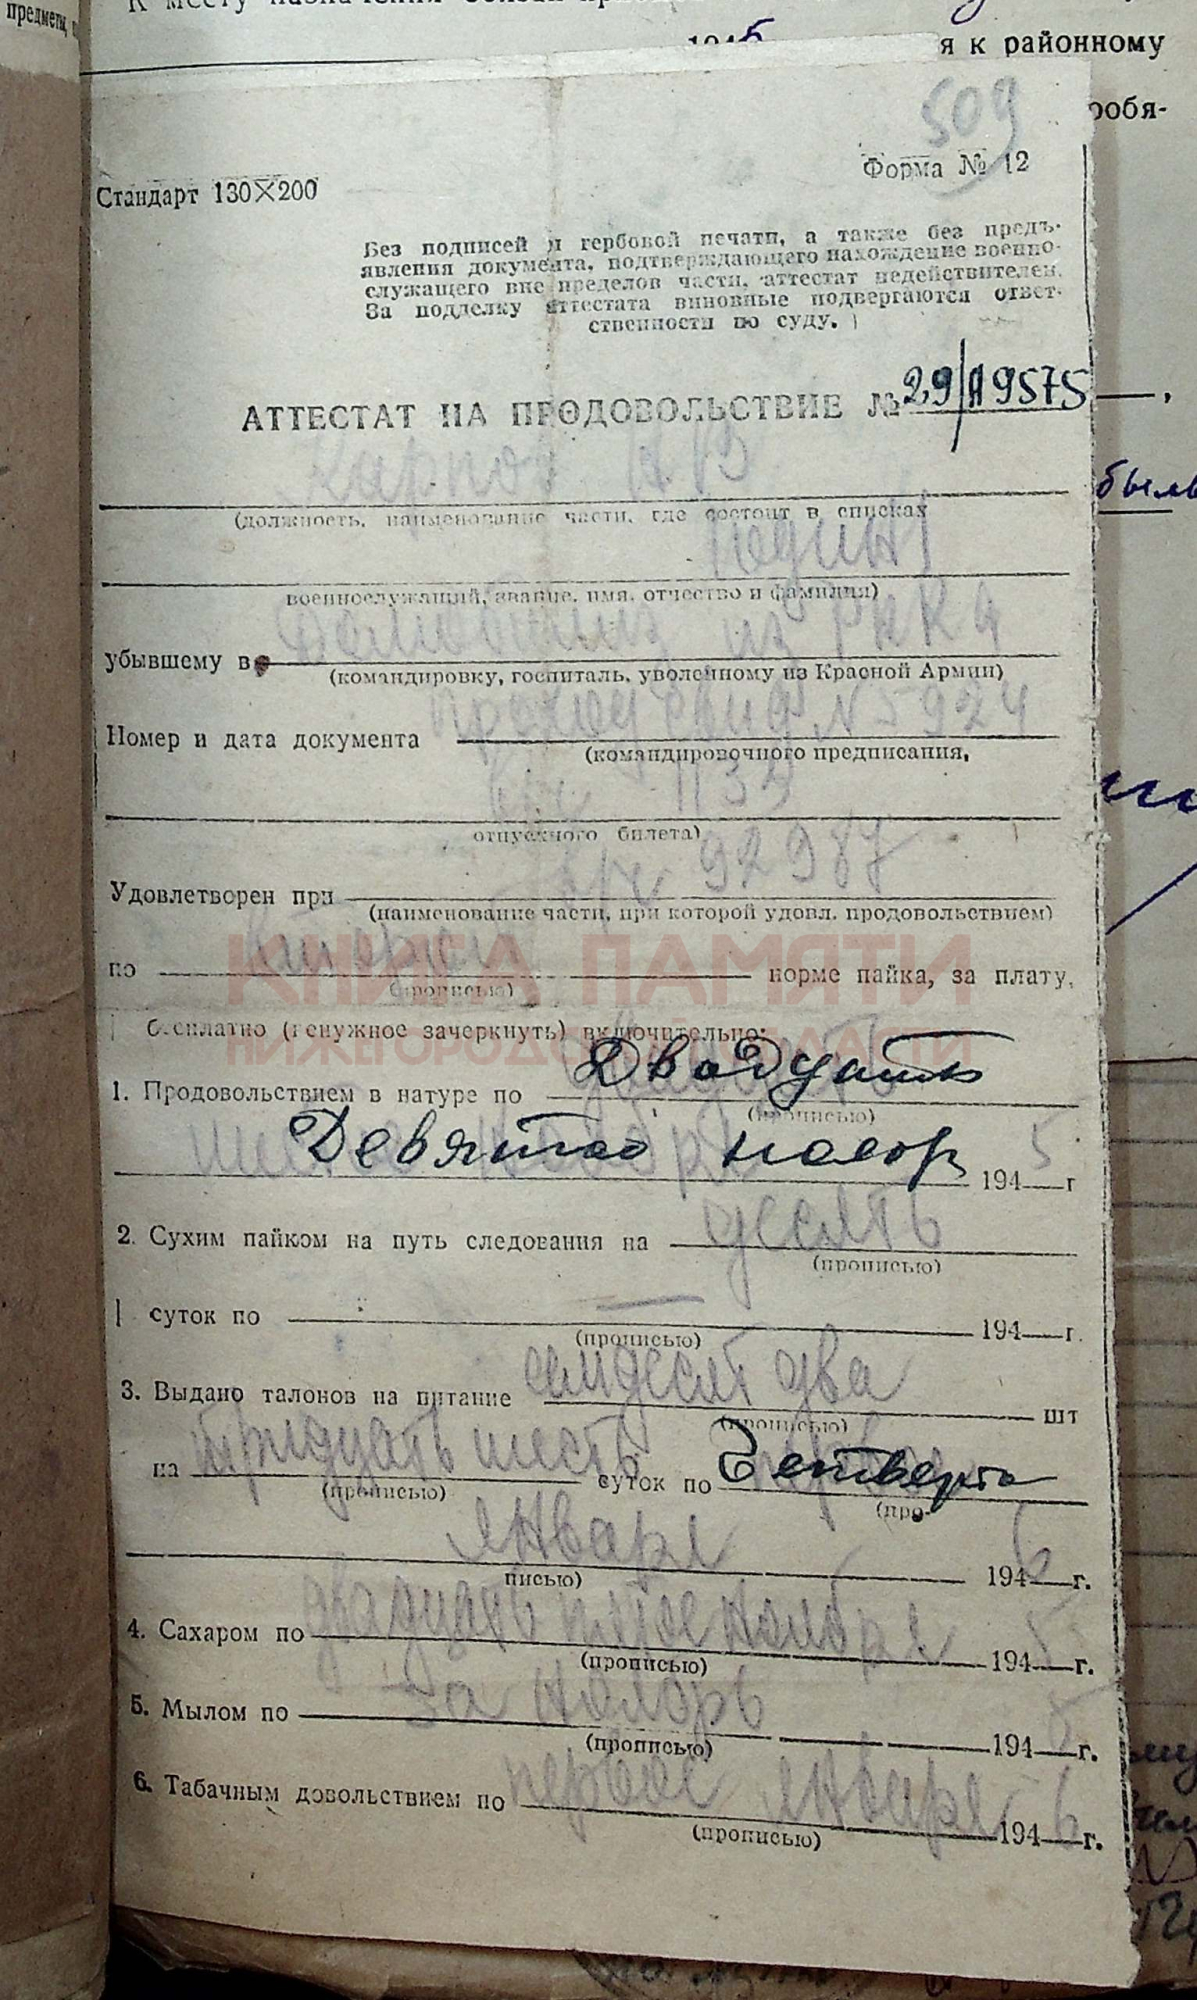 предметы,
1945
я к районному
509
Форма № 12
Стандарт 130×200
Без подписей и гербовой печати, а также без предъ-
явления документа, подтверждающего нахождение военно-
служащего вне пределов части, аттестат недействителен.
За подделку аттестата виновные подвергаются ответ-
ственности по суду.
АТТЕСТАТ НА ПРОДОВОЛЬСТВИЕ № 29/А9575
Карпов А В
(должность, наименование части, где состоит в списках
военнослужащий, звание, имя, отчество и фамилия)
убывшему в Демобилиз из РККА
(командировку, госпиталь, уволенному из Красной Армии)
Номер и дата документа проход свид № 5924
(командировочного предписания,
в/ч 1135
отпускного билета)
Удовлетворен при в/ч 92987
(наименование части, при которой удовл. продовольствием)
по второй норме пайка, за плату,
(прописью)
бесплатно (ненужное зачеркнуть) включительно:
КНИГА ПАМЯТИ
НИЖЕГОРОДСКОЙ ОБЛАСТИ
1. Продовольствием в натуре по Двадцать
(прописью)
Девятое ноябр 1945 г
2. Сухим пайком на путь следования на десять
(прописью)
суток по — 194 г.
(прописью)
3. Выдано талонов на питание семдесят два шт
(прописью)
на тридцать шесть суток по Четверто
(прописью) (про-
января 1946 г.
писью)
4. Сахаром по двадцать ноября 1945 г.
(прописью)
5. Мылом по За ноябрь 1945 г.
(прописью)
6. Табачным довольствием по первое января 1946 г.
(прописью)